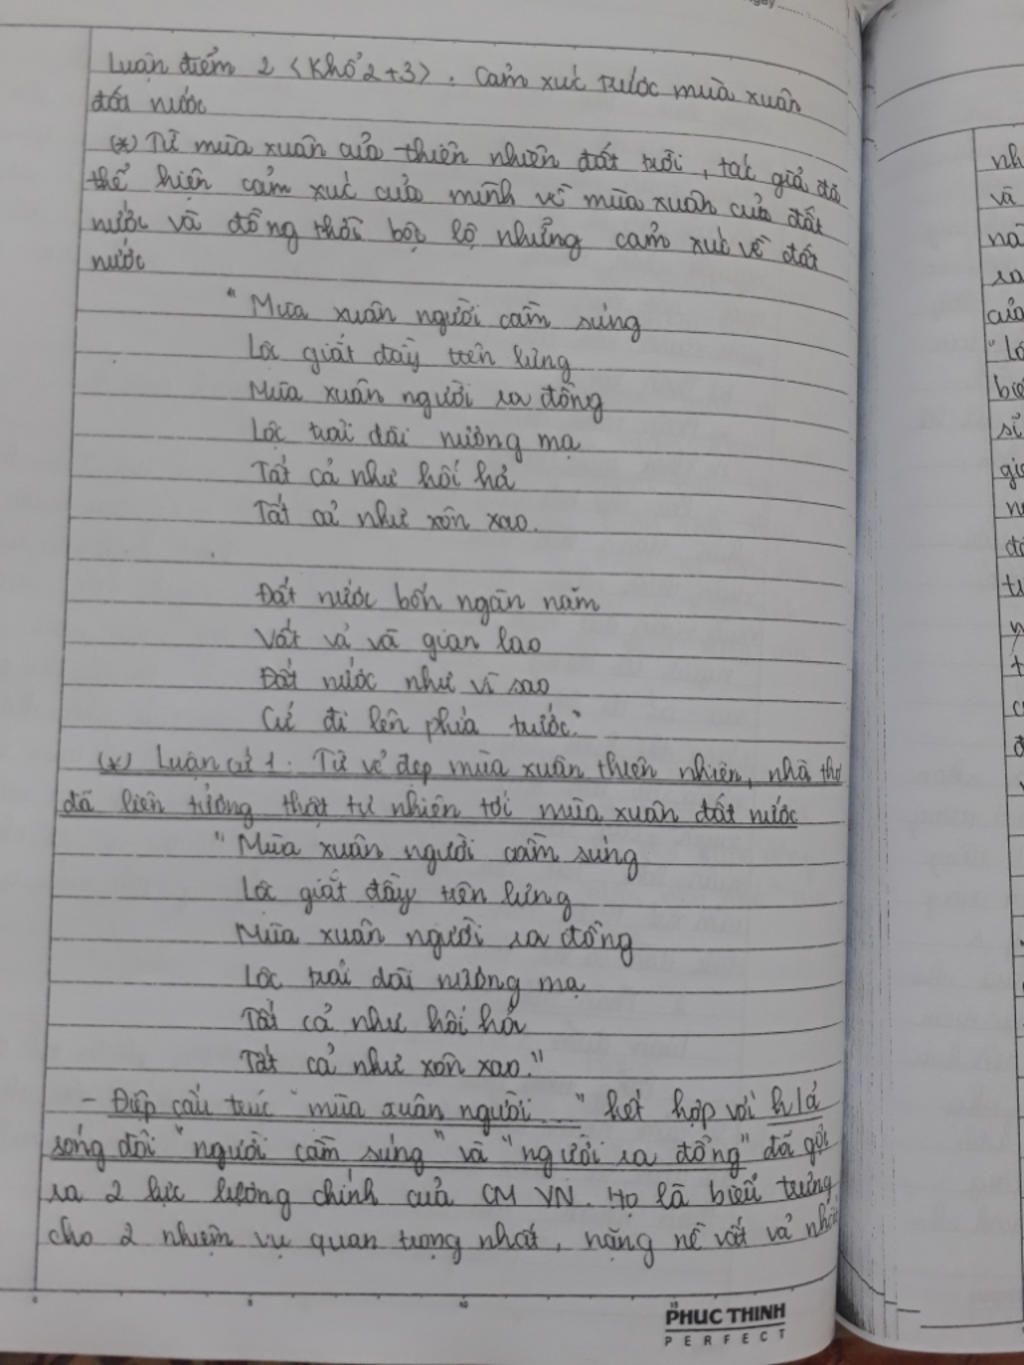 Luận điểm 2 <Khổ 2+3>. Cảm xúc trước mùa xuân
đất nước
(*) Từ mùa xuân của thiên nhiên đất trời, tác giả đã
thể hiện cảm xúc của mình về mùa xuân của đất
nước và đồng thời bộc lộ những cảm xúc về đất
nước
"Mùa xuân người cầm súng
Lộc giắt đầy trên lưng
Mùa xuân người ra đồng
Lộc trải dài nương mạ
Tất cả như hối hả
Tất cả như xôn xao.
Đất nước bốn ngàn năm
Vất vả và gian lao
Đất nước như vì sao
Cứ đi lên phía trước."
(*) Luận cứ 1. Từ vẻ đẹp mùa xuân thiên nhiên, nhà thơ
đã liên tưởng thật tự nhiên tới mùa xuân đất nước
"Mùa xuân người cầm súng
Lộc giắt đầy trên lưng
Mùa xuân người ra đồng
Lộc trải dài nương mạ
Tất cả như hối hả
Tất cả như xôn xao."
- Điệp cấu trúc "mùa xuân người..." kết hợp với h/ả
song đôi "người cầm súng" và "người ra đồng" đã gợi
ra 2 lực lượng chính của CM VN. Họ là biểu trưng
cho 2 nhiệm vụ quan trọng nhất, nặng nề vất vả nhất
PHUC THINH
PERFECT